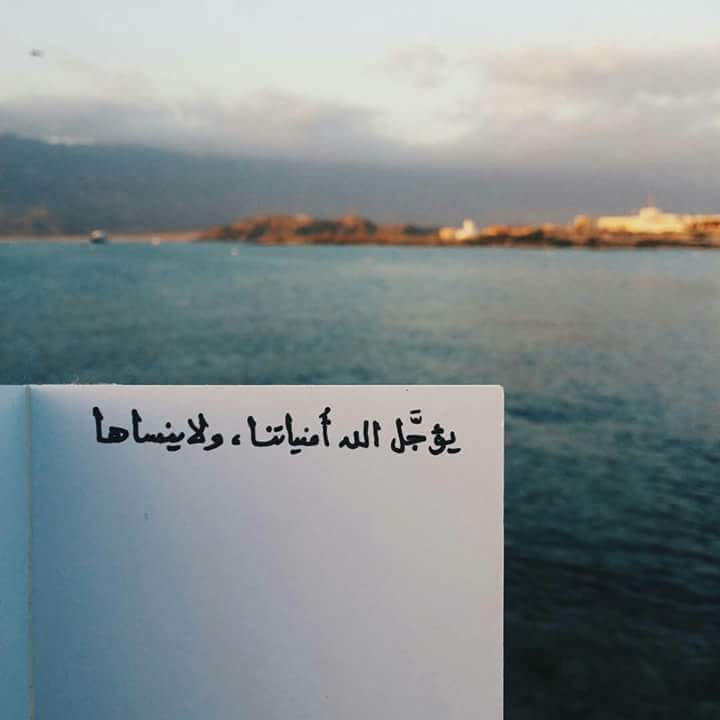 يؤجَّل الله أمنياتنا، ولاينساها